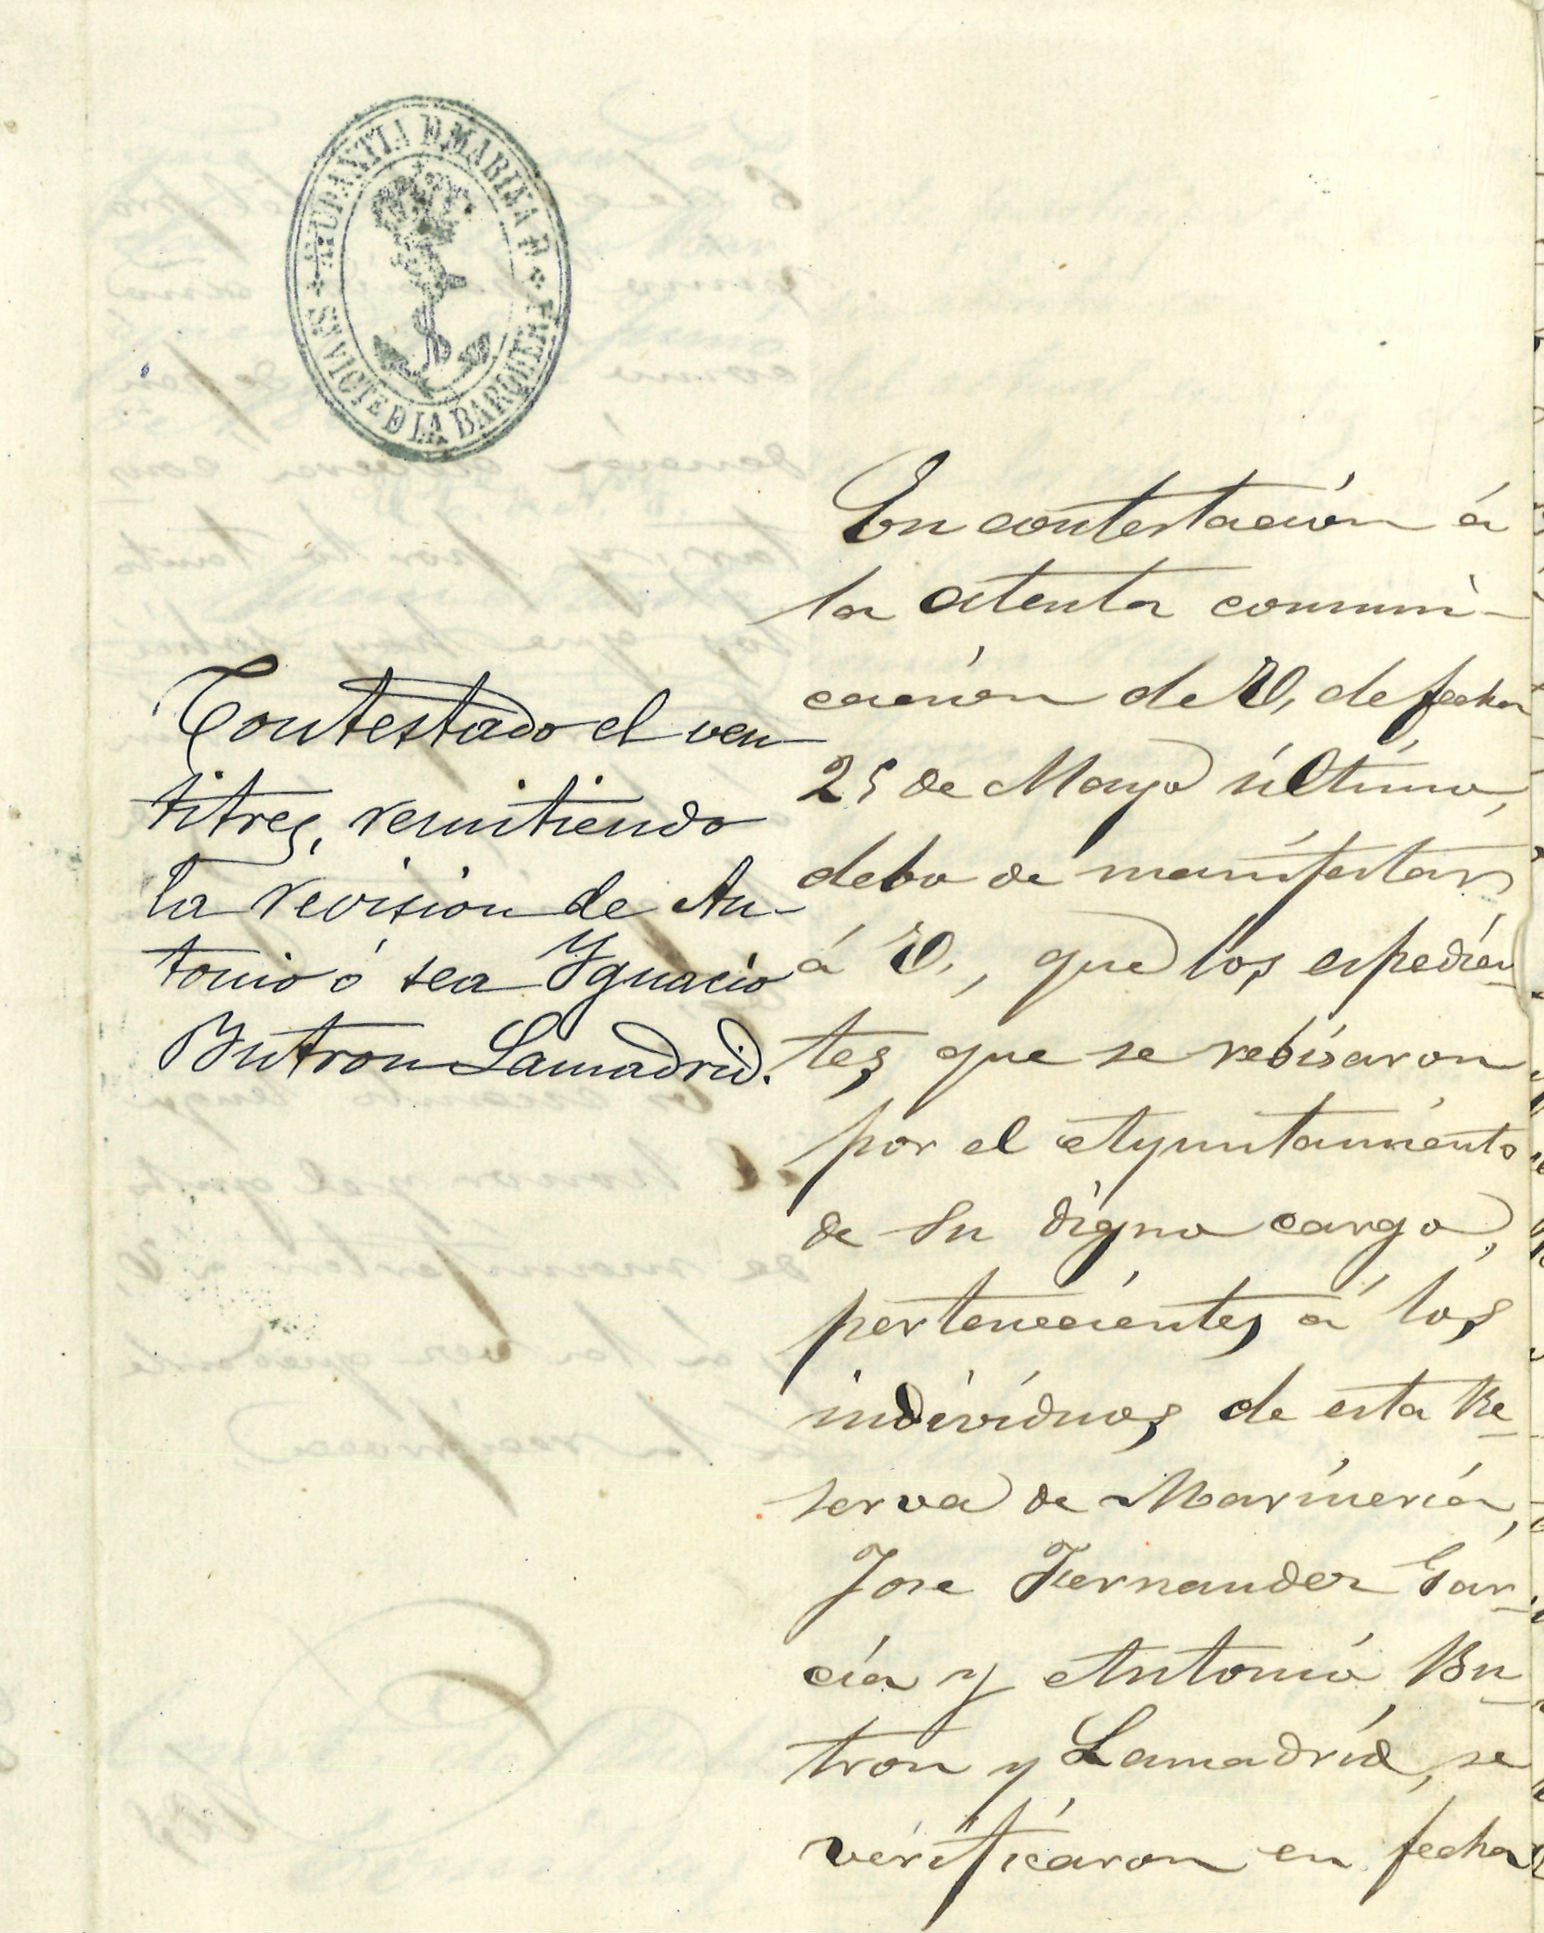 AYUDANTIA DE MARINA DE
SN VICTE DE LA BARQUERA
Contestado el ven-
titres, remitiendo
la revision de An-
tonio ó sea Ygnacio
Butron Lamadrid.
En contestación á
la atenta comuni-
cación de V, de fecha
25 de Mayo último,
debo de manifestar
á V., que los espedien-
tes que se rebisaron
por el Ayuntamiento
de su digno cargo,
pertenecientes á los
individuos de esta Re-
serva de Marinería,
Jose Fernandez Gar-
cía y Antonio Bu-
tron y Lamadrid, se
verificaron en fecha